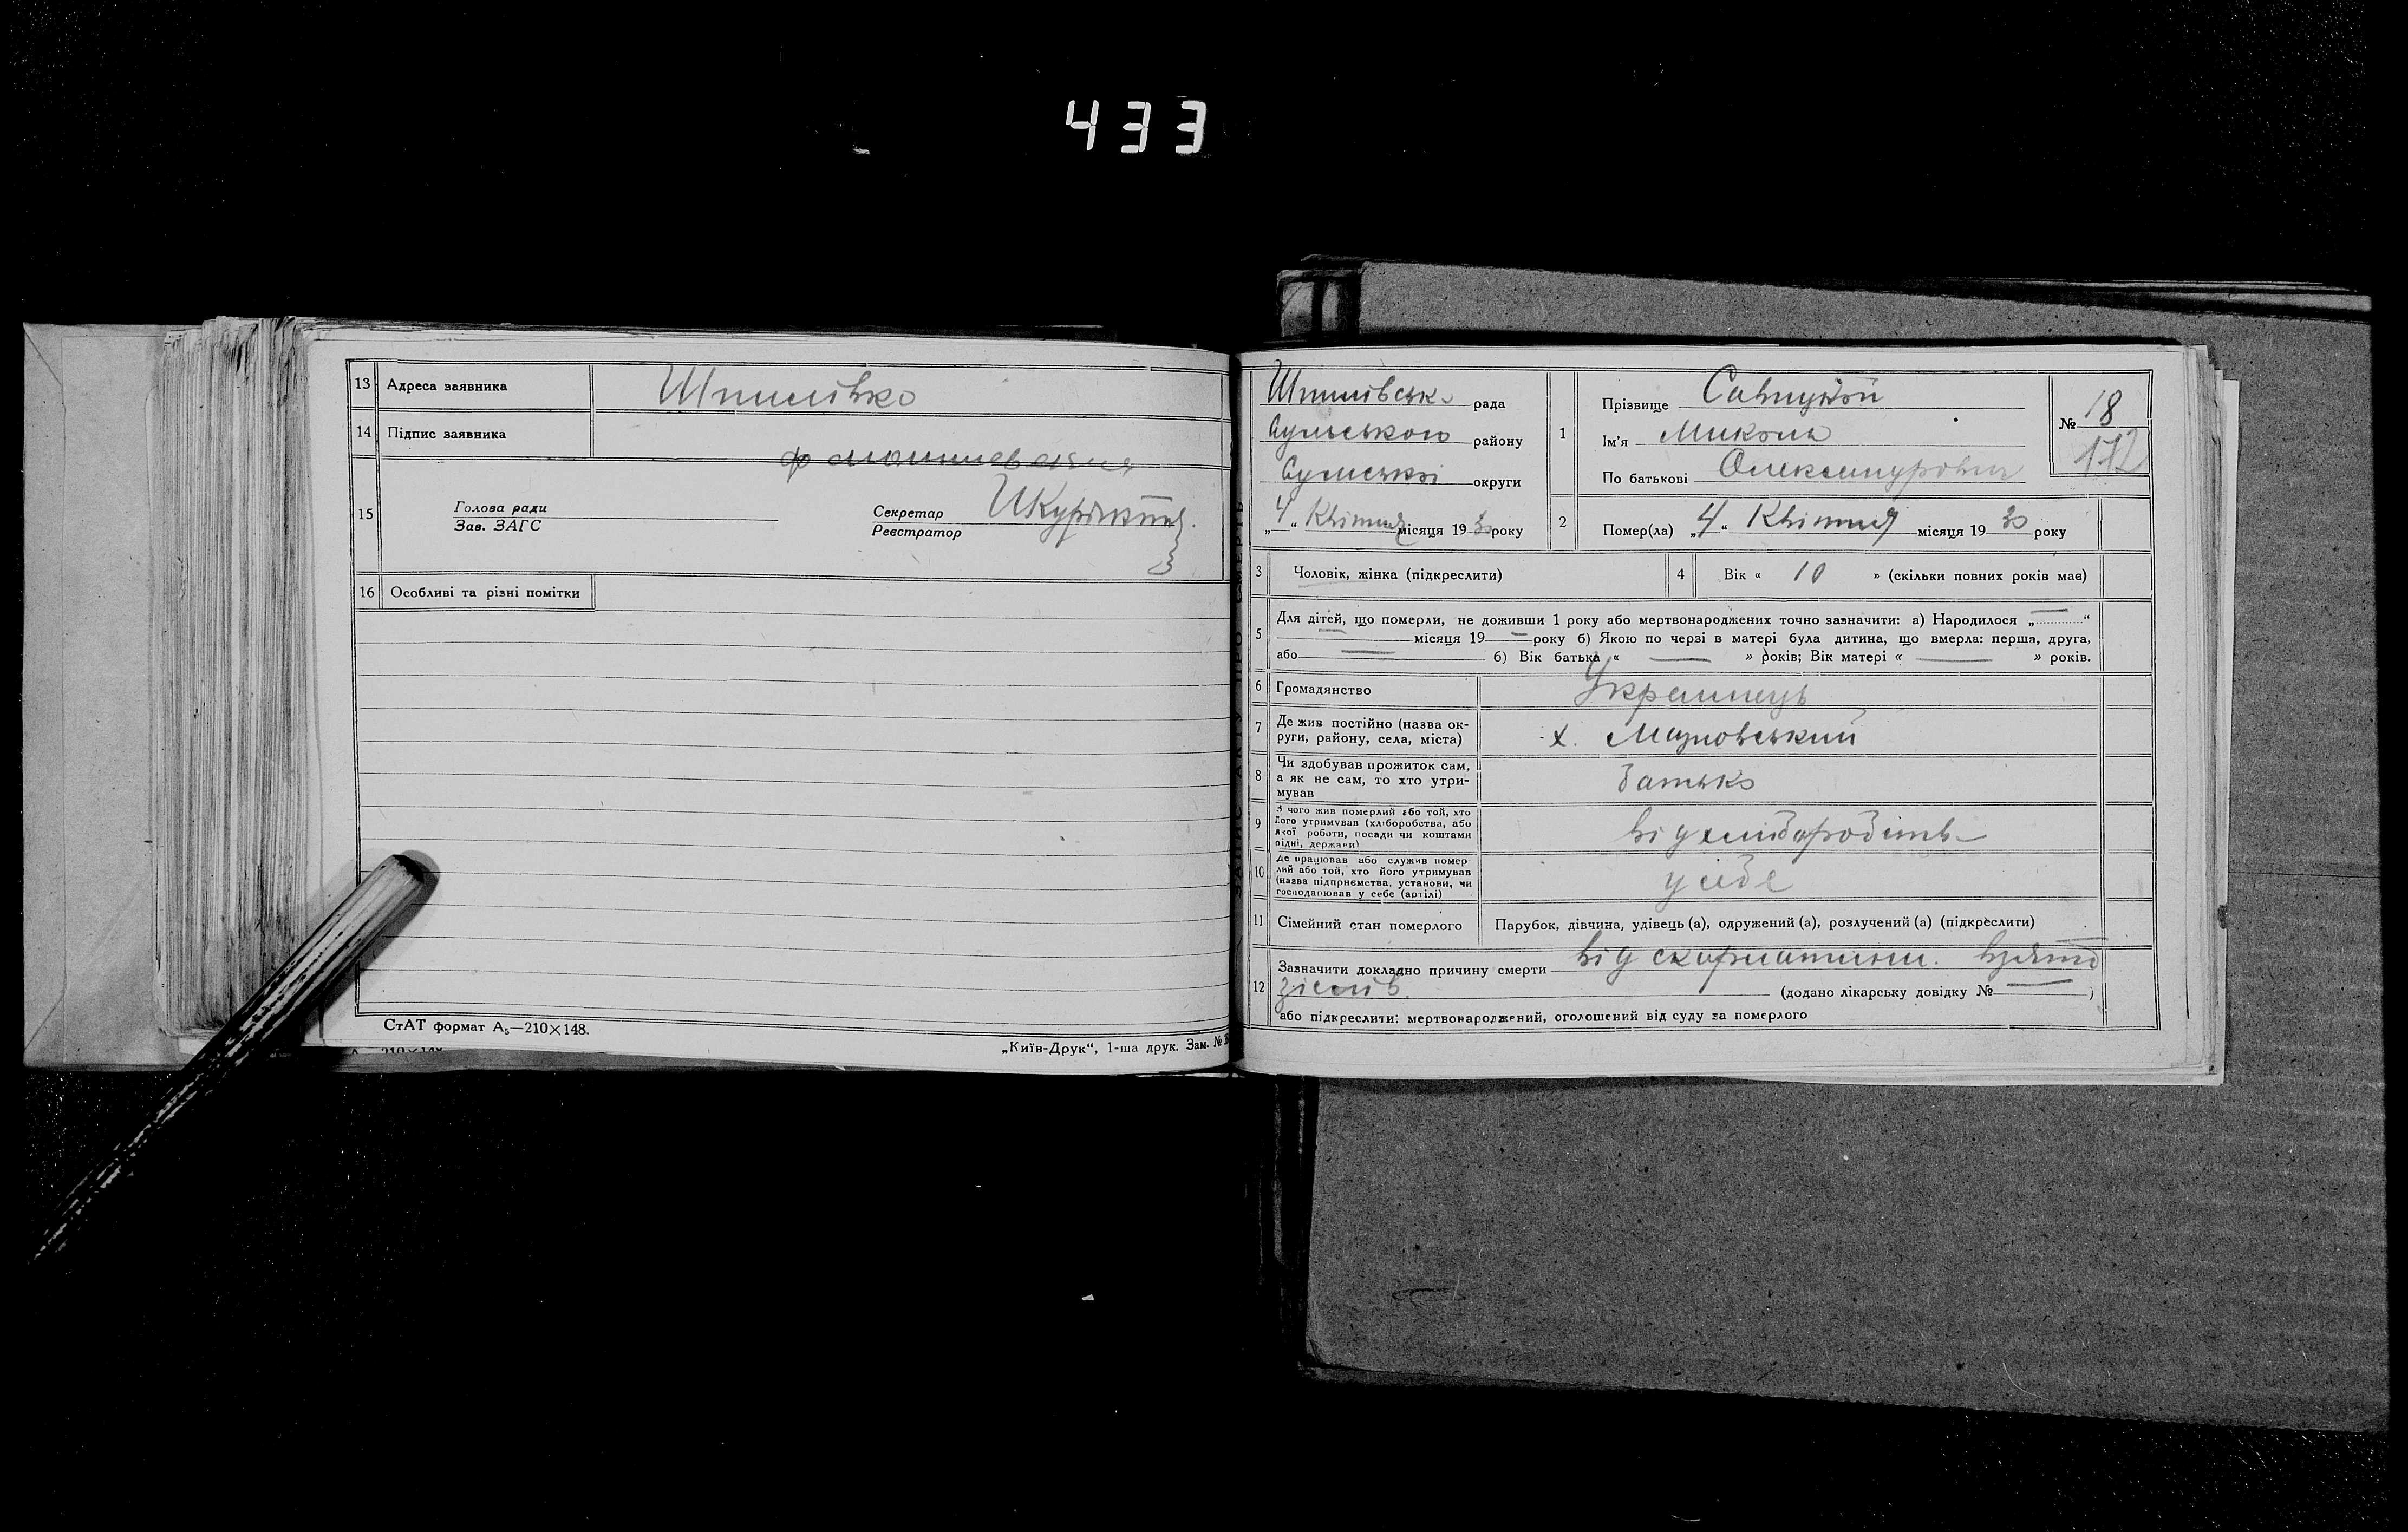 433
13 Адреса заявника Шпилівка
14 Підпис заявника
15 Голова ради
Зав. ЗАГС
Секретар
Реєстратор
16 Особливі та різні помітки
СтАТ формат А₅—210×148.
„Київ-Друк“, 1-ша друк. Зам. №
ЗАПИС АКТУ ПРО СМЕРТЬ
Шпилівська рада
Сумського району
Сумської округи
„4“ Квітня місяця 1930 року
1 Прізвище Савицький
Ім'я Микола
По батькові Олександрович
№ 18
172
2 Помер(ла) „4“ Квітня місяця 1930 року
3 Чоловік, жінка (підкреслити)
4 Вік « 10 » (скільки повних років має)
5 Для дітей, що померли, не доживши 1 року або мертвонароджених точно зазначити: а) Народилося „—“
— місяця 19 — року б) Якою по черзі в матері була дитина, що вмерла: перша, друга,
або — б) Вік батька « — » років; Вік матері « — » років.
6 Громадянство Українець
7 Де жив постійно (назва округи, району, села, міста) х.
8 Чи здобував прожиток сам,
а як не сам, то хто утримував Батько
9 З чого жив померлий або той, хто
його утримував (хліборобства, або
якої роботи, посади чи коштами
рідні, держави) від хліборобства
10 Де працював або служив померлий або той, хто його утримував
(назва підприємства, установи, чи
господарював у себе (артілі) у себе
11 Сімейний стан померлого Парубок, дівчина, удівець (а), одружений (а), розлучений (а) (підкреслити)
12 Зазначити докладно причину смерти від скарлатини. взято
зі слів. (додано лікарську довідку № — )
або підкреслити: мертвонароджений, оголошений від суду за померлого